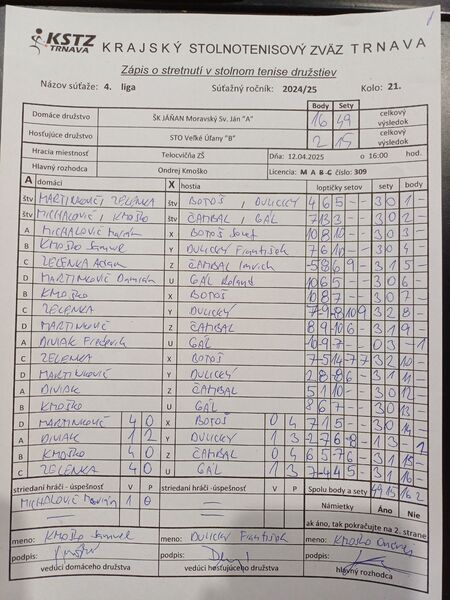 KSTZ
TRNAVA
KRAJSKÝ STOLNOTENISOVÝ ZVÄZ TRNAVA
Zápis o stretnutí v stolnom tenise družstiev
Názov súťaže: 4. liga Súťažný ročník: 2024/25 Kolo: 21.
Body Sety
Domáce družstvo ŠK JÁŇAN Moravský Sv. Ján "A" 16 49 celkový výsledok
Hosťujúce družstvo STO Veľké Úľany "B" 2 15 celkový výsledok
Hracia miestnosť Telocvičňa ZŠ Dňa: 12.04.2025 o 16:00 hod.
Hlavný rozhodca Ondrej Kmoško Licencia: M A B C číslo: 309
A domáci X hostia loptičky setov sety body
štv MARTINKOVIČ, ZELENKA BOTOŠ, DULICKÝ 4 6 5 - - 3 0 1 -
štv MICHALOVIČ, KMOŠKO ČAMBAL, GÁL 7 13 3 - - 3 0 2 -
A MICHALOVIČ Marián X BOTOŠ Jozef 10 8 10 - - 3 0 3 -
B KMOŠKO Samuel Y DULICKÝ František 7 6 10 - - 3 0 4 -
C ZELENKA Adam Z ČAMBAL Imrich -5 8 6 9 - 3 1 5 -
D MARTINKOVIČ Damián U GÁL Roland 10 6 5 - - 3 0 6 -
B KMOŠKO X BOTOŠ 10 8 7 - - 3 0 7 -
C ZELENKA Y DULICKÝ 7 -9 -8 10 9 3 2 8 -
D MARTINKOVIČ Z ČAMBAL 8 9 -10 6 - 3 1 9 -
A DIVIAK Frederich U GÁL -10 -9 -7 - - 0 3 - 1
C ZELENKA X BOTOŠ 7 -5 14 -7 7 3 2 10 -
D MARTINKOVIČ Y DULICKÝ 2 8 -8 6 - 3 1 11 -
A DIVIAK Z ČAMBAL 5 11 0 - - 3 0 12 -
B KMOŠKO U GÁL 8 6 7 - - 3 0 13 -
D MARTINKOVIČ 4 0 X BOTOŠ 0 4 7 1 5 - - 3 0 14 -
A DIVIAK 1 2 Y DULICKÝ 1 3 -2 7 -6 -8 - 1 3 - 2
B KMOŠKO 4 0 Z ČAMBAL 0 4 6 5 -7 6 - 3 1 15 -
C ZELENKA 4 0 U GÁL 1 3 7 -4 4 5 - 3 1 16 -
striedaní hráči - úspešnosť V P striedaní hráči - úspešnosť V P Spolu body a sety 49 15 16 2
MICHALOVIČ Marián 1 0 Námietky Áno Nie
ak áno, tak pokračujte na 2. strane
meno: KMOŠKO Samuel meno: DULICKÝ František meno: KMOŠKO Ondrej
podpis: podpis: podpis:
vedúci domáceho družstva vedúci hosťujúceho družstva hlavný rozhodca